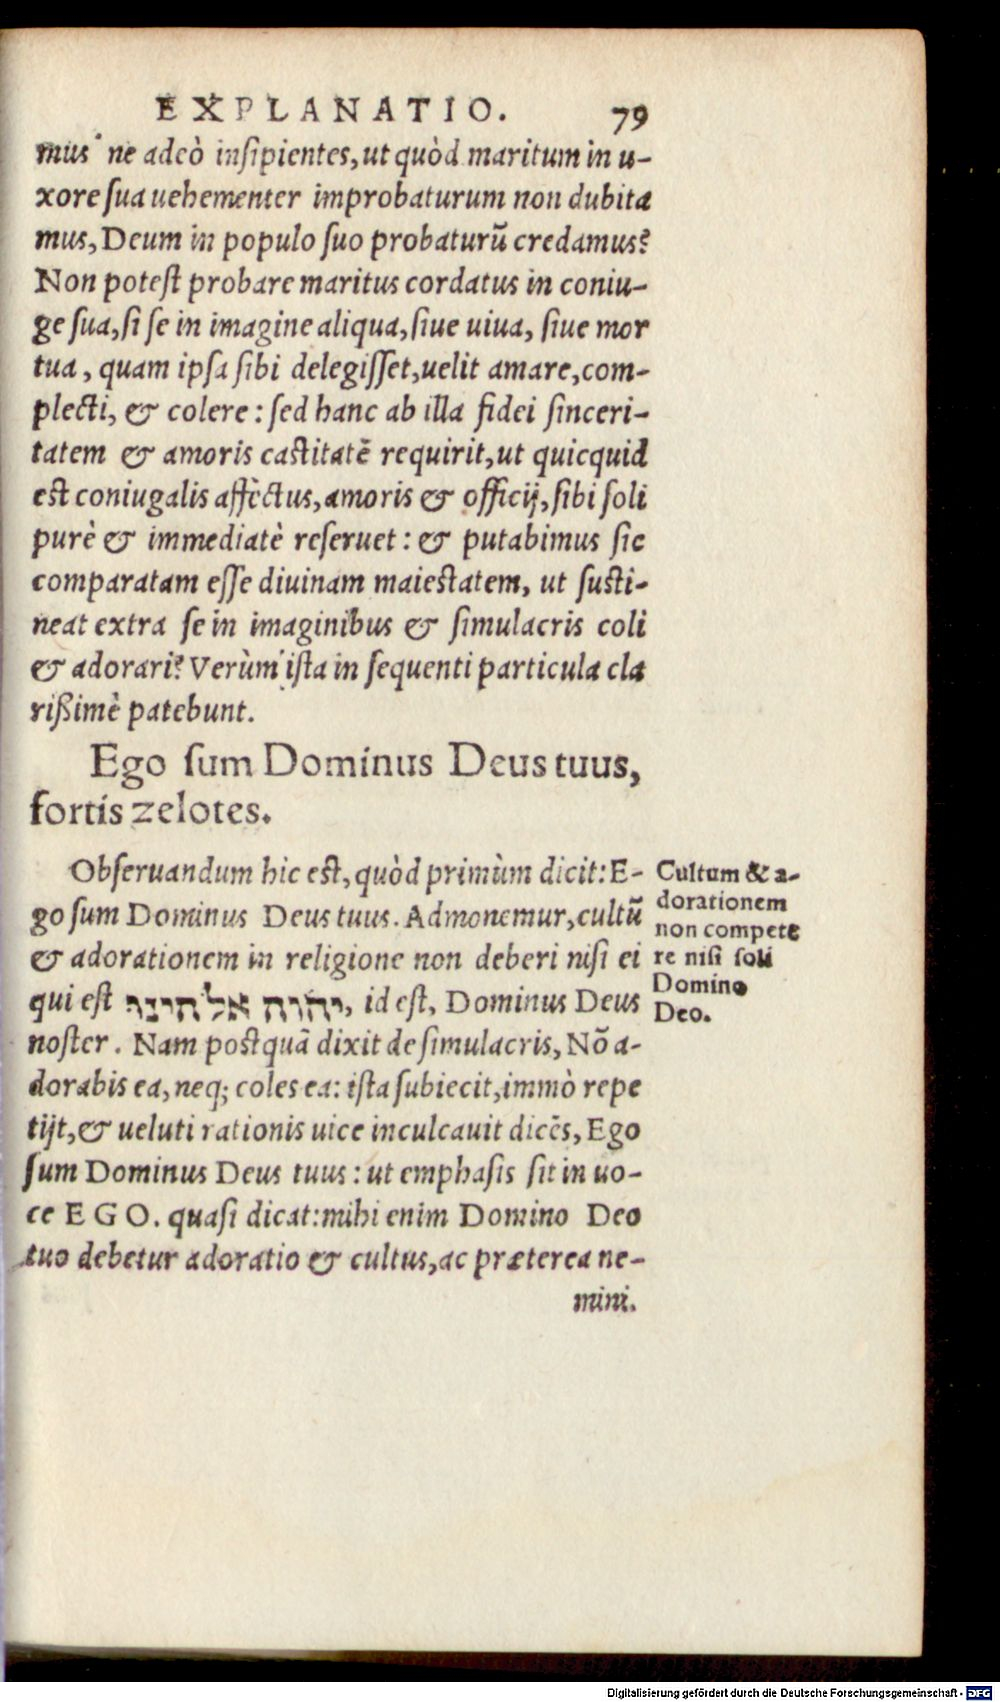 EXPLANATIO. 79
mus ne adeò insipientes, ut quòd maritum in u-
xore sua uehementer improbaturum non dubita
mus, Deum in populo suo probaturũ credamus?
Non potest probare maritus cordatus in coniu-
ge sua, si se in imagine aliqua, siue uiua, siue mor
tua, quam ipsa sibi delegisset, uelit amare, com-
plecti, & colere: sed hanc ab illa fidei sinceri-
tatem & amoris castitatẽ requirit, ut quicquid
est coniugalis affectus, amoris & officij, sibi soli
purè & immediatè reseruet: & putabimus sic
comparatam esse diuinam maiestatem, ut susti-
neat extra se in imaginibus & simulacris coli
& adorari? Verùm ista in sequenti particula cla
rißimè patebunt.
Ego sum Dominus Deus tuus,
fortis zelotes.
Obseruandum hic est, quòd primùm dicit: E-
go sum Dominus Deus tuus. Admonemur, cultũ
& adorationem in religione non deberi nisi ei
qui est יהוה אלהינו, id est, Dominus Deus
noster. Nam postquã dixit de simulacris, Nõ a-
dorabis ea, neq; coles ea: ista subiecit, immò repe
tijt, & ueluti rationis uice inculcauit dicẽs, Ego
sum Dominus Deus tuus: ut emphasis sit in uo-
ce EGO. quasi dicat: mihi enim Domino Deo
tuo debetur adoratio & cultus, ac præterea ne-
mini.
Cultum & a-
dorationem
non compete
re nisi soli
Domino
Deo.
Digitalisierung gefördert durch die Deutsche Forschungsgemeinschaft - DFG